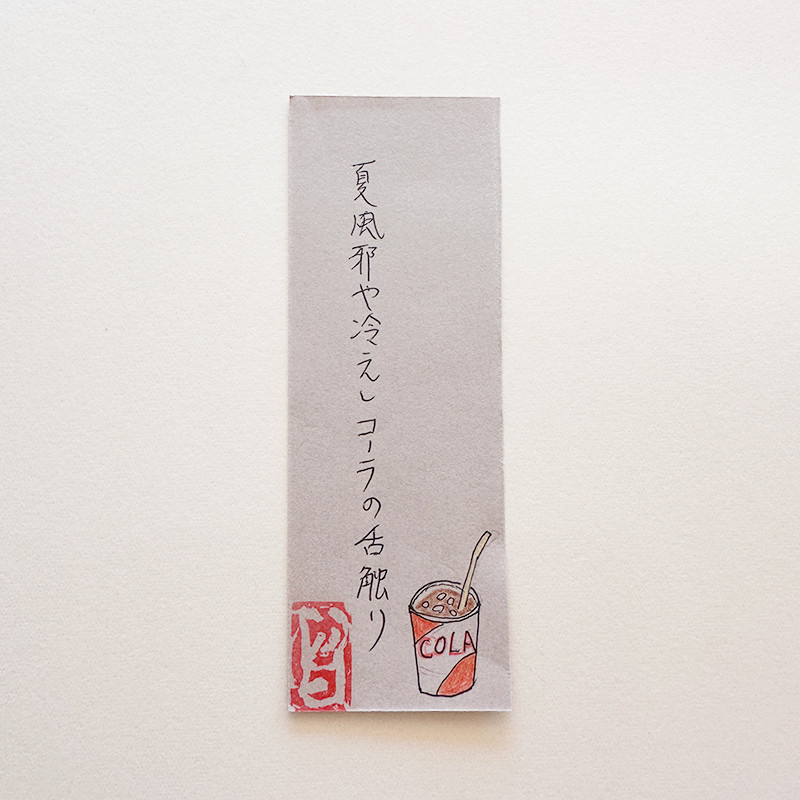 夏風邪や冷えしコーラの舌触り
COLA